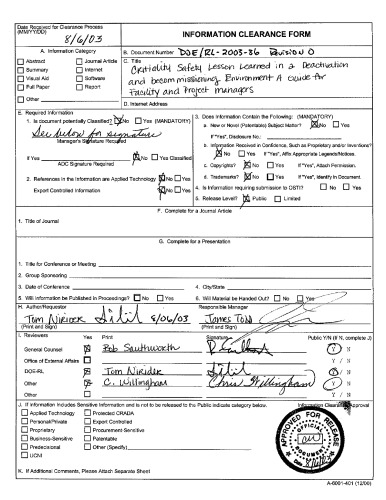 Date Required for Clearance Process
(MM/YY/DD)
8/6/03
INFORMATION CLEARANCE FORM
A. Information Category
Abstract Journal Article
Summary Internet
Visual Aid Software
Full Paper Report
Other
B. Document Number DOE/RL-2003-36 Revision 0
C. Title
Criticality Safety Lesson Learned in a Deactivation
and Decommissioning Environment A Guide for
Facility and Project managers
D. Internet Address
E. Required Information
1. Is document potentially Classified? No Yes (MANDATORY)
See below for signature
Manager's Signature Required
If Yes No Yes Classified
ADC Signature Required
2. References in the Information are Applied Technology No Yes
Export Controlled Information No Yes
3. Does Information Contain the Following: (MANDATORY)
a. New or Novel (Patentable) Subject Matter? No Yes
If "Yes", Disclosure No.:
b. Information Received in Confidence, Such as Proprietary and/or Inventions?
No Yes If "Yes", Affix Appropriate Legends/Notices.
c. Copyrights? No Yes If "Yes", Attach Permission.
d. Trademarks? No Yes If "Yes", Identify in Document.
4. Is Information requiring submission to OSTI? No Yes
5. Release Level? Public Limited
F. Complete for a Journal Article
1. Title of Journal
G. Complete for a Presentation
1. Title for Conference or Meeting
2. Group Sponsoring
3. Date of Conference 4. City/State
5. Will Information be Published in Proceedings? No Yes 6. Will Material be Handed Out? No Yes
H. Author/Requestor Responsible Manager
Tom Nirider 8/06/03 James Todd
(Print and Sign) (Print and Sign)
I. Reviewers Yes Print Signature Public Y/N (If N, complete J)
General Counsel Bob Southworth Y / N
Office of External Affairs Y / N
DOE-RL Tom Nirider Y / N
Other C. Willingham Chris Willingham Y / N
Other Y / N
J. If Information Includes Sensitive Information and is not to be released to the Public indicate category below. Information Clearance Approval
Applied Technology Protected CRADA
Personal/Private Export Controlled
Proprietary Procurement-Sensitive
Business-Sensitive Patentable
Predecisional Other (Specify)
UCNI
APPROVED FOR RELEASE
8/6/03
K. If Additional Comments, Please Attach Separate Sheet
A-6001-401 (12/00)